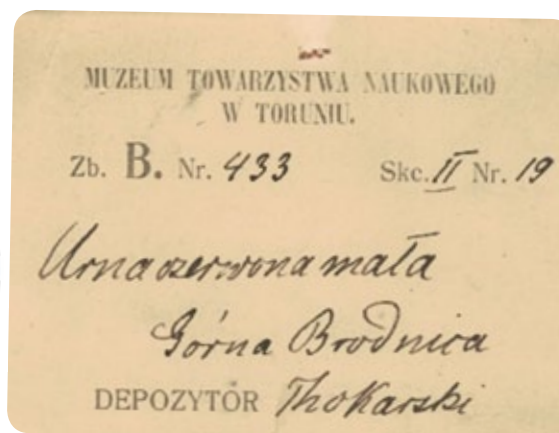 MUZEUM TOWARZYSTWA NAUKOWEGO
W TORUNIU.
Zb. B. Nr. 433 Skc. II Nr. 19
Urna czerwona mała
Górna Brodnica
DEPOZYTÓR Thokarski